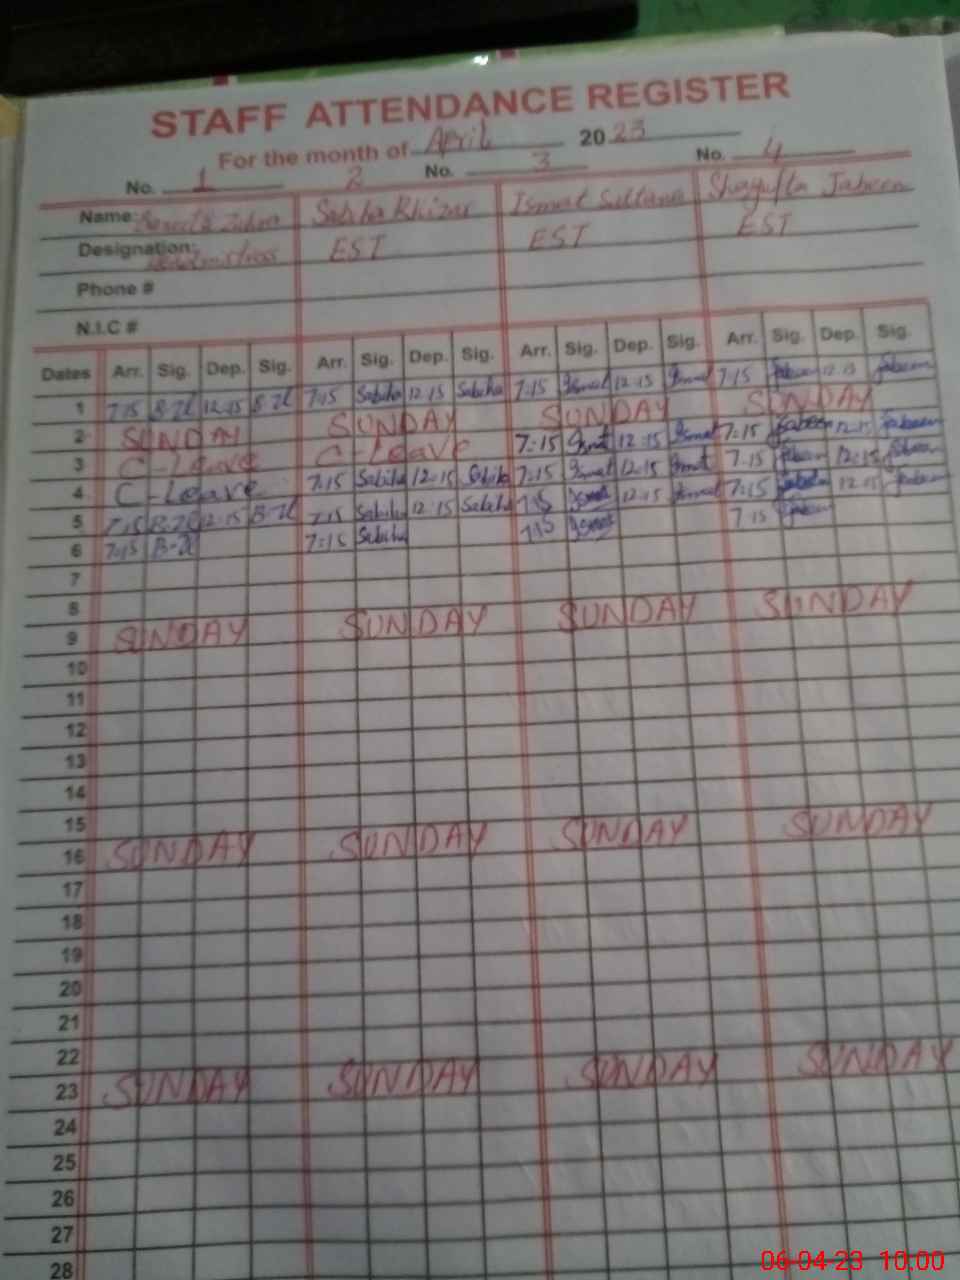 STAFF ATTENDANCE REGISTER
For the month of April 2023
No. 1 2 No. 3 No. 4
Name: Zahra Sabiha Khizar Ismat Sultana Shagufta Jabeen
Designation: Headmistress EST EST EST
Phone #
N.I.C #
Dates Arr. Sig. Dep. Sig. Arr. Sig. Dep. Sig. Arr. Sig. Dep. Sig. Arr. Sig. Dep. Sig.
1 7:15 B-Zl 12:15 B-Zl 7:15 Sabiha 12:15 Sabiha 7:15 Ismat 12:15 Ismat 7:15 Jabeen 12:15 Jabeen
2 SUNDAY SUNDAY SUNDAY SUNDAY
3 C-Leave C-Leave 7:15 Ismat 12:15 Ismat 7:15 Jabeen 12:15 Jabeen
4 C-Leave 7:15 Sabiha 12:15 Sabiha 7:15 Ismat 12:15 Ismat 7:15 Jabeen 12:15 Jabeen
5 7:15 B-Zl 12:15 B-Zl 7:15 Sabiha 12:15 Sabiha 7:15 Ismat 12:15 Ismat 7:15 Jabeen 12:15 Jabeen
6 7:15 B-Zl 7:15 Sabiha 7:15 Ismat 7:15 Jabeen
7
8
9 SUNDAY SUNDAY SUNDAY SUNDAY
10
11
12
13
14
15
16 SUNDAY SUNDAY SUNDAY SUNDAY
17
18
19
20
21
22
23 SUNDAY SUNDAY SUNDAY SUNDAY
24
25
26
27
28
06-04-23 10.00